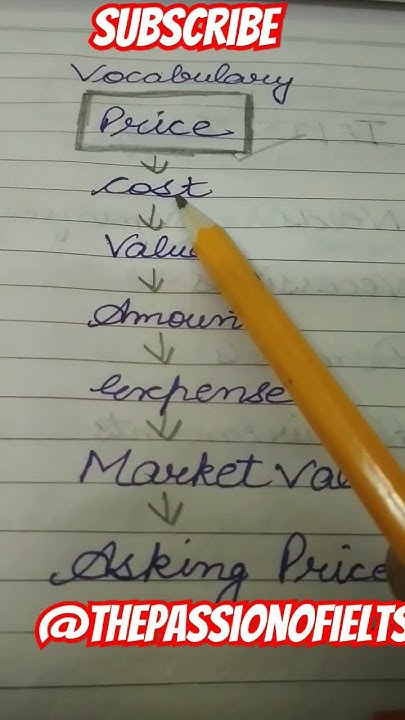 SUBSCRIBE
Vocabulary
Price
Cost
Value
Amoun
Expense
Market Va
Asking Price
@THEPASSIONOFIELTS